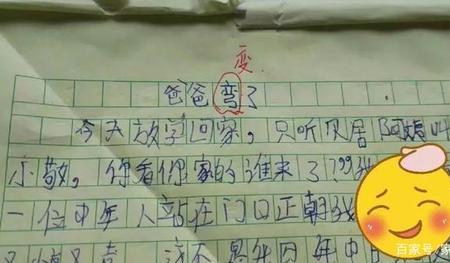 变
爸爸弯了
今天放学回家,只听见居阿姨叫
小敬,你看你家的谁来了???我
一位中年人站在门口正朝我
百家号/家